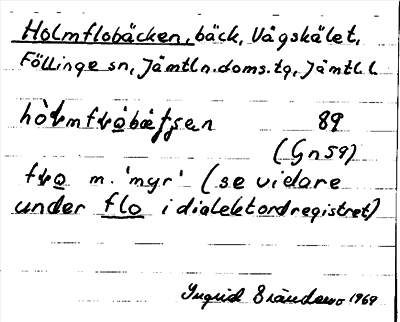 Holmflobäcken, bäck, Vågskålet,
Föllinge sn, Jämtl.n.doms.tg, Jämtl.l.
89
(Gn59)
m. 'myr' (se vidare
under flo i dialektordregistret)
Ingrid 1969